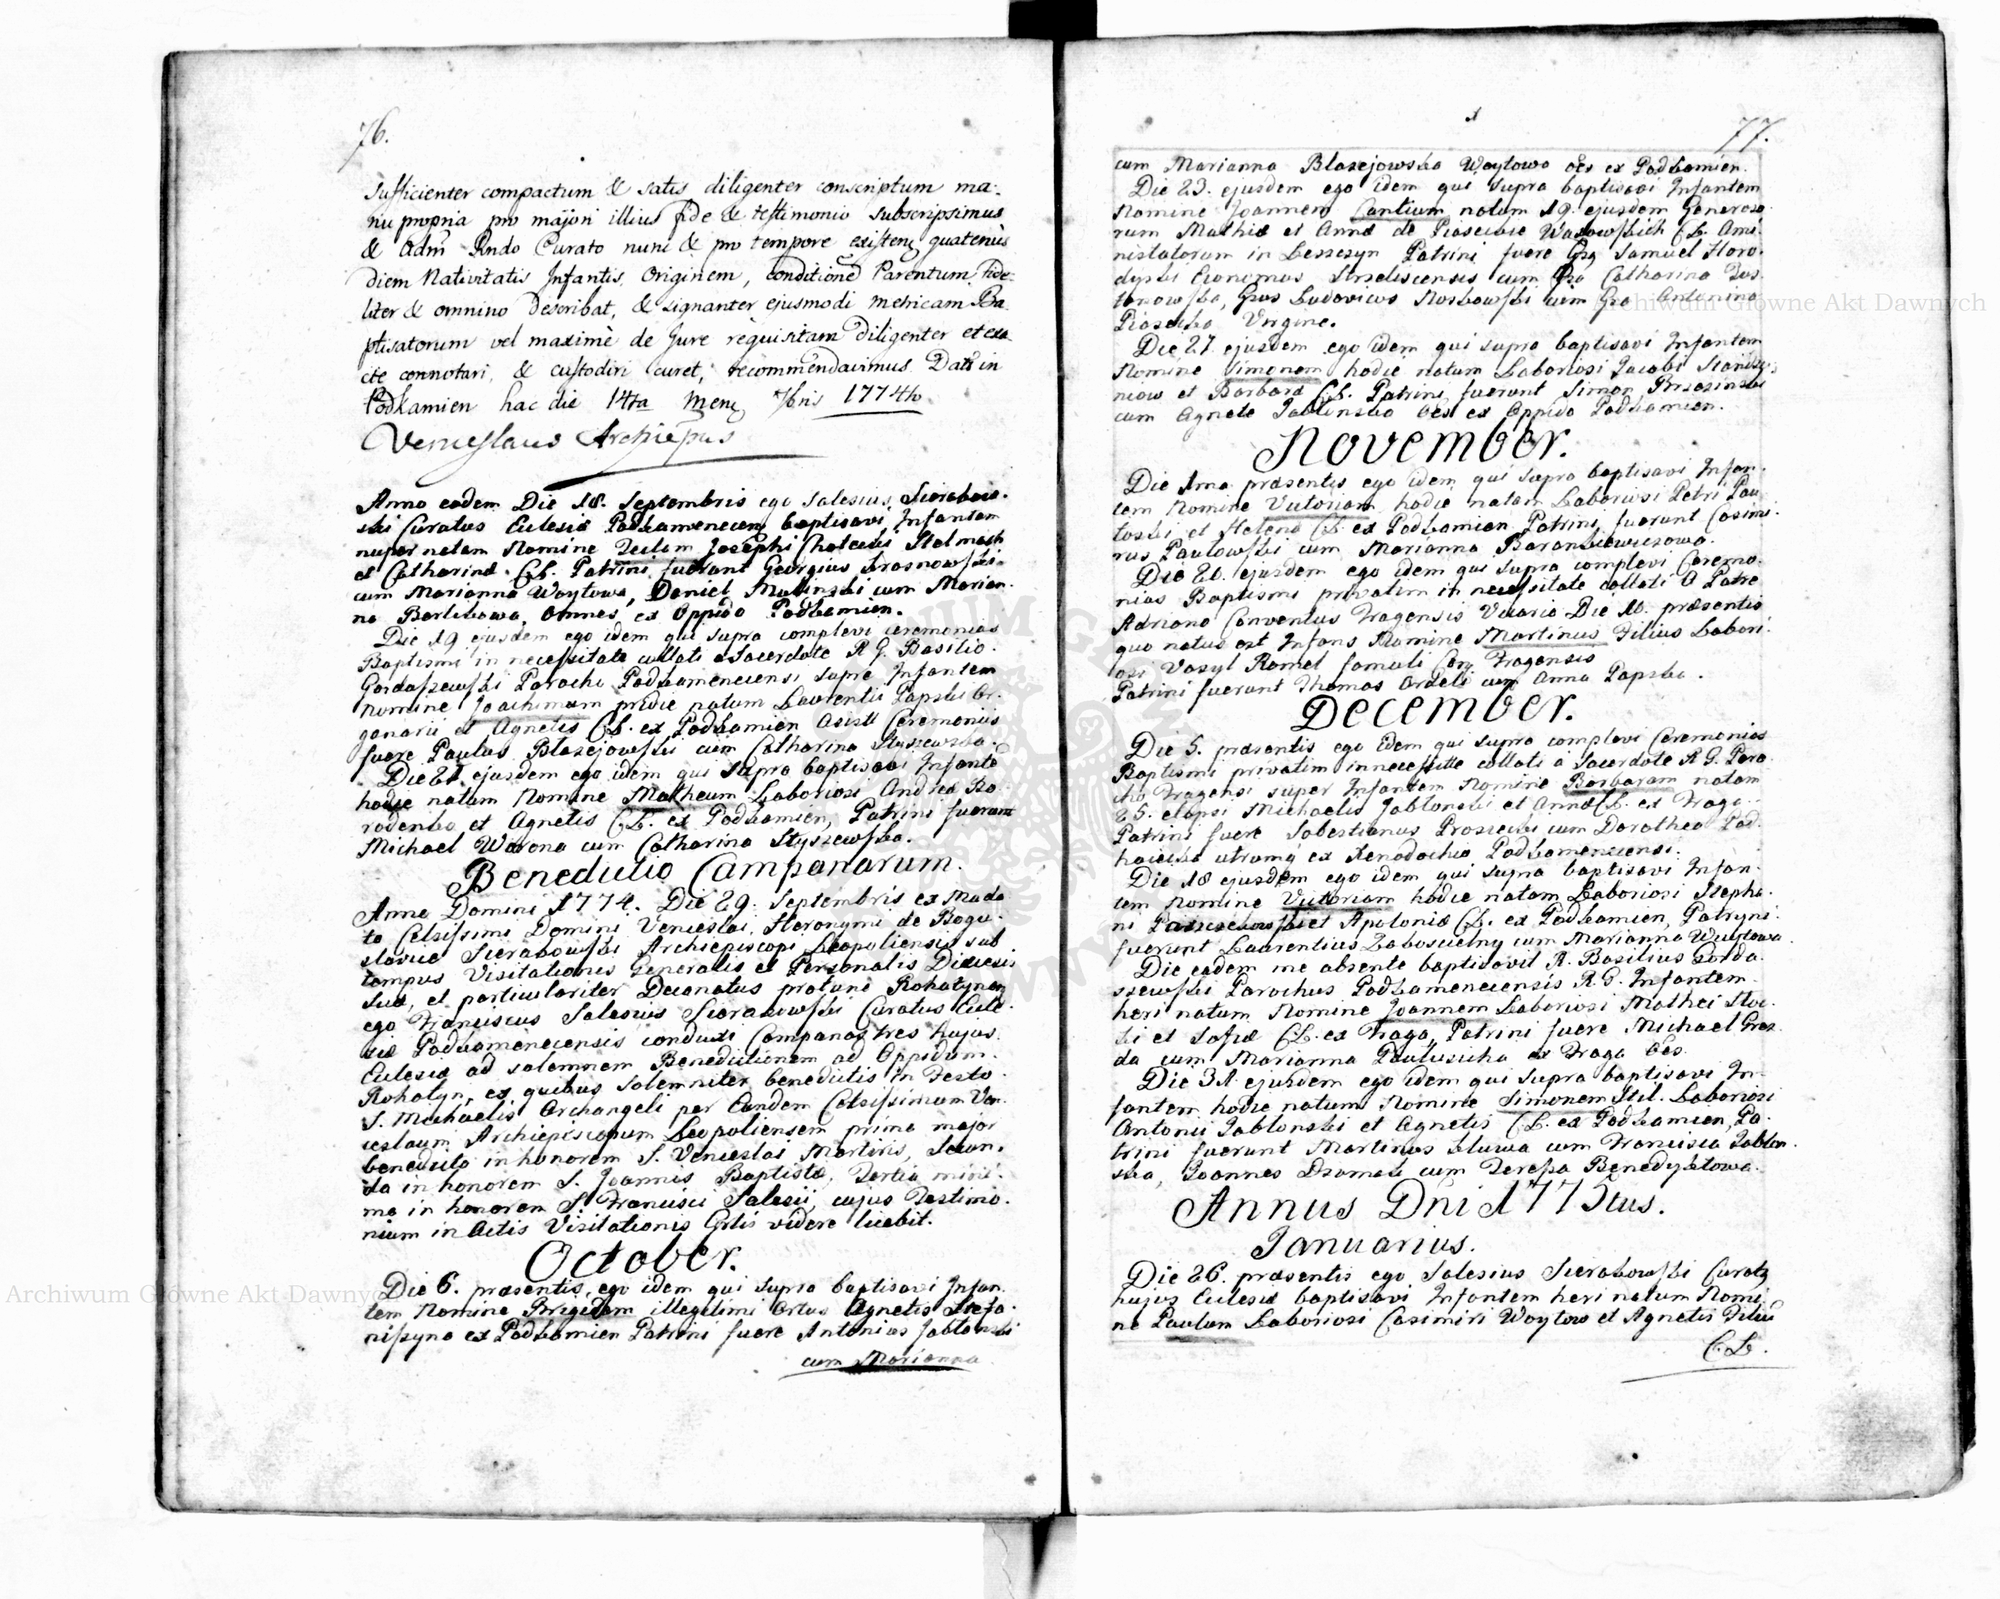 76.
sufficienter compactum & satis diligenter conscriptum ma-
nu propria pro majori illius fide & testimonio subscripsimus
& Adm Rndo Curato nunc & pro tempore existen quatenus
diem Nativitatis Infantis, Originem, conditione Parentum fide-
liter & omnino describat, & signanter ejusmodi metricam Ba-
ptisatorum vel maximè de Jure requisitam diligenter et exa-
cte connotari, & custodiri curet, recommendavimus. Datt in
Podkamien hac die 14ta Mens 7bris 1774to
Venceslaus Archiepus
Anno eodem Die 18. Septembris ego Salesius Sierakow-
ski Curatus Eclesiæ Podkamenecens baptisavi Infantem
nuper natam Nomine Teclam Josephi Stelmach
et Catharinæ C.L. Patrini fuerunt Georgius Krasnowski
cum Marianna Woytowa, Daniel Malinski cum Marian-
na omnes ex Oppido Podkamien.
Die 19 ejusdem ego idem qui supra complevi ceremonias
Baptismi in necessitate collati a Sacerdote R. G. Basilio
Gordaszewski Parocho Podkamenecensi supre Infantem
Nomine Joachimum pridie natum Laurentii Papski Or-
ganarii et Agnetis C.L. ex Podkamien Asistt Ceremoniis
fuere Paulus Blazejowski cum Catharina Styszewska.
Die 21 ejusdem ego idem qui supra baptisavi Infante
hodie natum Nomine Matheum Laboriosi Andreæ
et Agnetis C.L. ex Podkamien, Patrini fuerunt
Michael Warona cum Catharina Styszewska.
Benedictio Campanarum.
Anno Domini 1774. Die 29. Septembris ex Mada-
to Celsissimi Domini Venceslai Hieronymi de Bogu-
slavice Sierakowski Archiepiscopi Leopoliensis sub
tempus Visitationis Generalis et Personalis Diæcesis
suæ, et particulariter Decanatus protunc Rohatynen
ego Franciscus Salesius Sierakowski Curatus Ecle-
siæ Podkamenecensis conduxi Campanas tres hujus
Eclesiæ ad solemnem Benedictionem ad Oppidum
Rohatyn, ex quibus solemniter benedictis in Festo
S. Michaelis Archangeli per Eundem Celsissimum Ven-
ceslaum Archiepiscopum Leopoliensem prima major
benedicta in honorem S. Venceslai Martiris, Secun-
da in honorem S. Joannis Baptistæ, Tertia mini-
ma in honorem S. Francisci Salesii, cujus Testimo-
nium in Actis Visitationis Grlis videre licebit.
October.
Die 6. præsentis ego idem qui supra baptisavi Infan-
tem Nomine Brigidam illegitimi ortus Agnetis Stefa-
niszyna ex Podkamien Patrini fuere Antonius Jablonski
cum Marianna
77.
cum Marianna Blazejowska Woytowa oes ex Podkamien.
Die 23. ejusdem ego idem qui supra baptisavi Infantem
Nomine Joannem Cantium natum 19. ejusdem Generoso-
rum Mathiæ et Annæ de C.L. Ami-
nistratorum in Patrini fuere Gsus Samuel Horo-
dyski Economus Streliscensis cum Gsa Catharina
Gsus Ludovicus cum Gsa Antonina
Virgine.
Die 27 ejusdem ego idem qui supra baptisavi Infantem
Nomine Simonem hodie natum Laboriosi Jacobi
et Barbara C.L. Patrini fuerunt Simon Brzezinski
cum Agnete Jablonska oes ex Oppido Podkamien.
November.
Die 1ma præsentis ego idem qui supra baptisavi Infan-
tem Nomine Victoriam hodie natam Laboriosi Petri
et Helena C.L. ex Podkamien Patrini fuerunt Casimi-
rus Pawlowski cum Marianna Barankiewiczowa.
Die 20. ejusdem ego idem qui supra complevi Ceremo-
nias Baptismi privatim in necessitate collati a Patre
Adriano Conventus Fragensis Vicario Die 10. præsentis
quo natus est Infans Nomine Martinus Filius Labori-
osi Vasyl Romel famuli Con Fragensis
Patrini fuerunt Thomas cum Anna Papska.
December.
Die 5. præsentis ego idem qui supra complevi Ceremonias
Baptismi privatim in necessitte collati a Sacerdote R G Paro-
cho Fragensi super Infantem Nomine Barbaram natam
25. elapsi Michaelis Jablonski et Annæ C.L. ex Fraga.
Patrini fuere Sabestianus cum Dorothea
utrumq ex Xenodochio Podkamenecensi.
Die 18 ejusdem ego idem qui supra baptisavi Infan-
tem Nomine Victoriam hodie natam Laboriosi Stepha-
ni et Apoloniæ C.L. ex Podkamien, Patryni
fuerunt Laurentius cum Marianna Woytowa.
Die eadem me absente baptisavit R. Basilius Gorda-
szewski Parochus Podkamenecensis R. G. Infantem
heri natum Nomine Joannem Laboriosi Mathei
et Sofiæ C.L. ex Fraga, Patrini fuere Michael
cum Marianna Pawlusicha ex Fraga oes.
Die 31 ejusdem ego idem qui supra baptisavi In-
fantem hodie natum Nomine Simonem Stil. Laboriosi
Antonii Jablonski et Agnetis C.L. ex Podkamien, Pa-
trini fuerunt Martinus cum Francisca Jablon-
ska, Joannes cum Teressa Benedyktowa.
Annus Dni 1775tus.
Januarius.
Die 26. præsentis ego Salesius Sierakowski Curatq
hujus Eclesiæ baptisavi Infantem heri natum Nomi-
ne Paulum Laboriosi Casimiri Woytow et Agnetis Filiu
C.L.
Archiwum Główne Akt Dawnych
Archiwum Główne Akt Dawnych